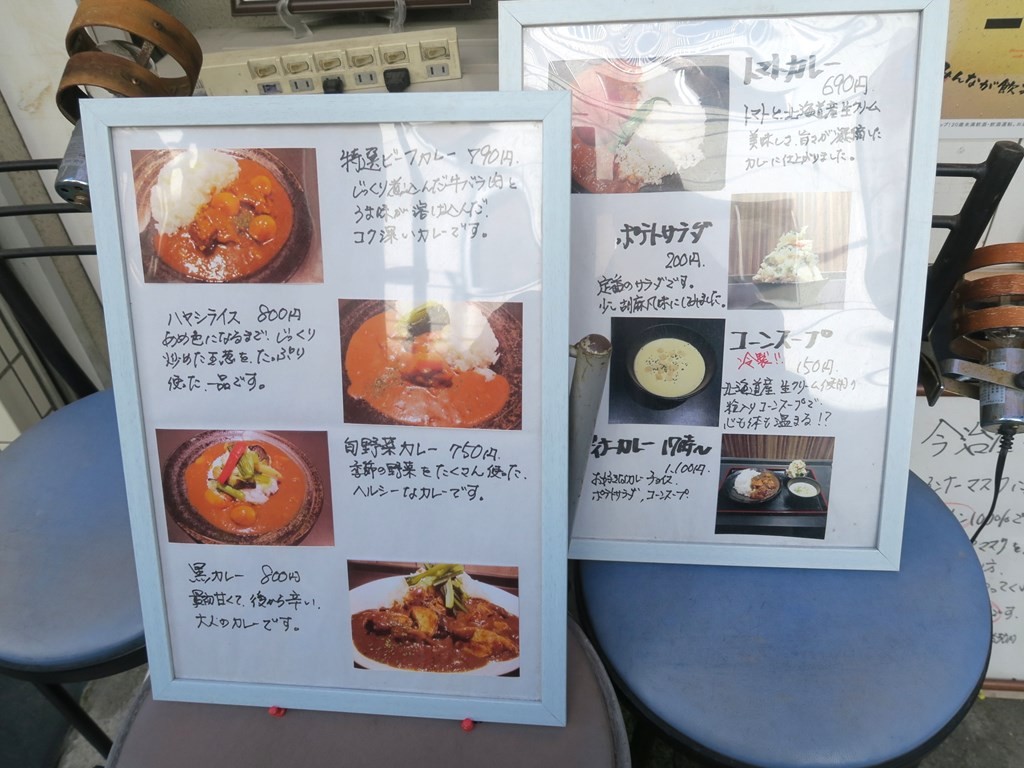 特選ビーフカレー 790円.
じっくり煮込んだ牛バラ肉と
うま味が溶け込んだ.
コク深いカレーです。
ハヤシライス 800円
あめ色になるまで、じっくり
炒めた玉葱を、たっぷり
使った、一品です。
旬野菜カレー 750円.
季節の野菜をたくさん使った、
ヘルシーなカレーです。
黒カレー 800円
最初甘くて、後から辛い、
大人のカレーです。
トマトカレー
690円.
トマトと北海道産生クリーム
美味しさ、旨さが凝縮した
カレーに仕上がりました。
ポテトサラダ
200円.
定番のサラダです。
少し胡麻風味にしてみました。
コーンスープ
冷製!! 150円.
北海道産 生クリーム使用の
粒入りコーンスープで、
心も体も温まる!?
ディナーカレー 17時〜
1,100円.
お好きなカレーチョイス.
ポテトサラダ, コーンスープ.
みんなが飲
今治